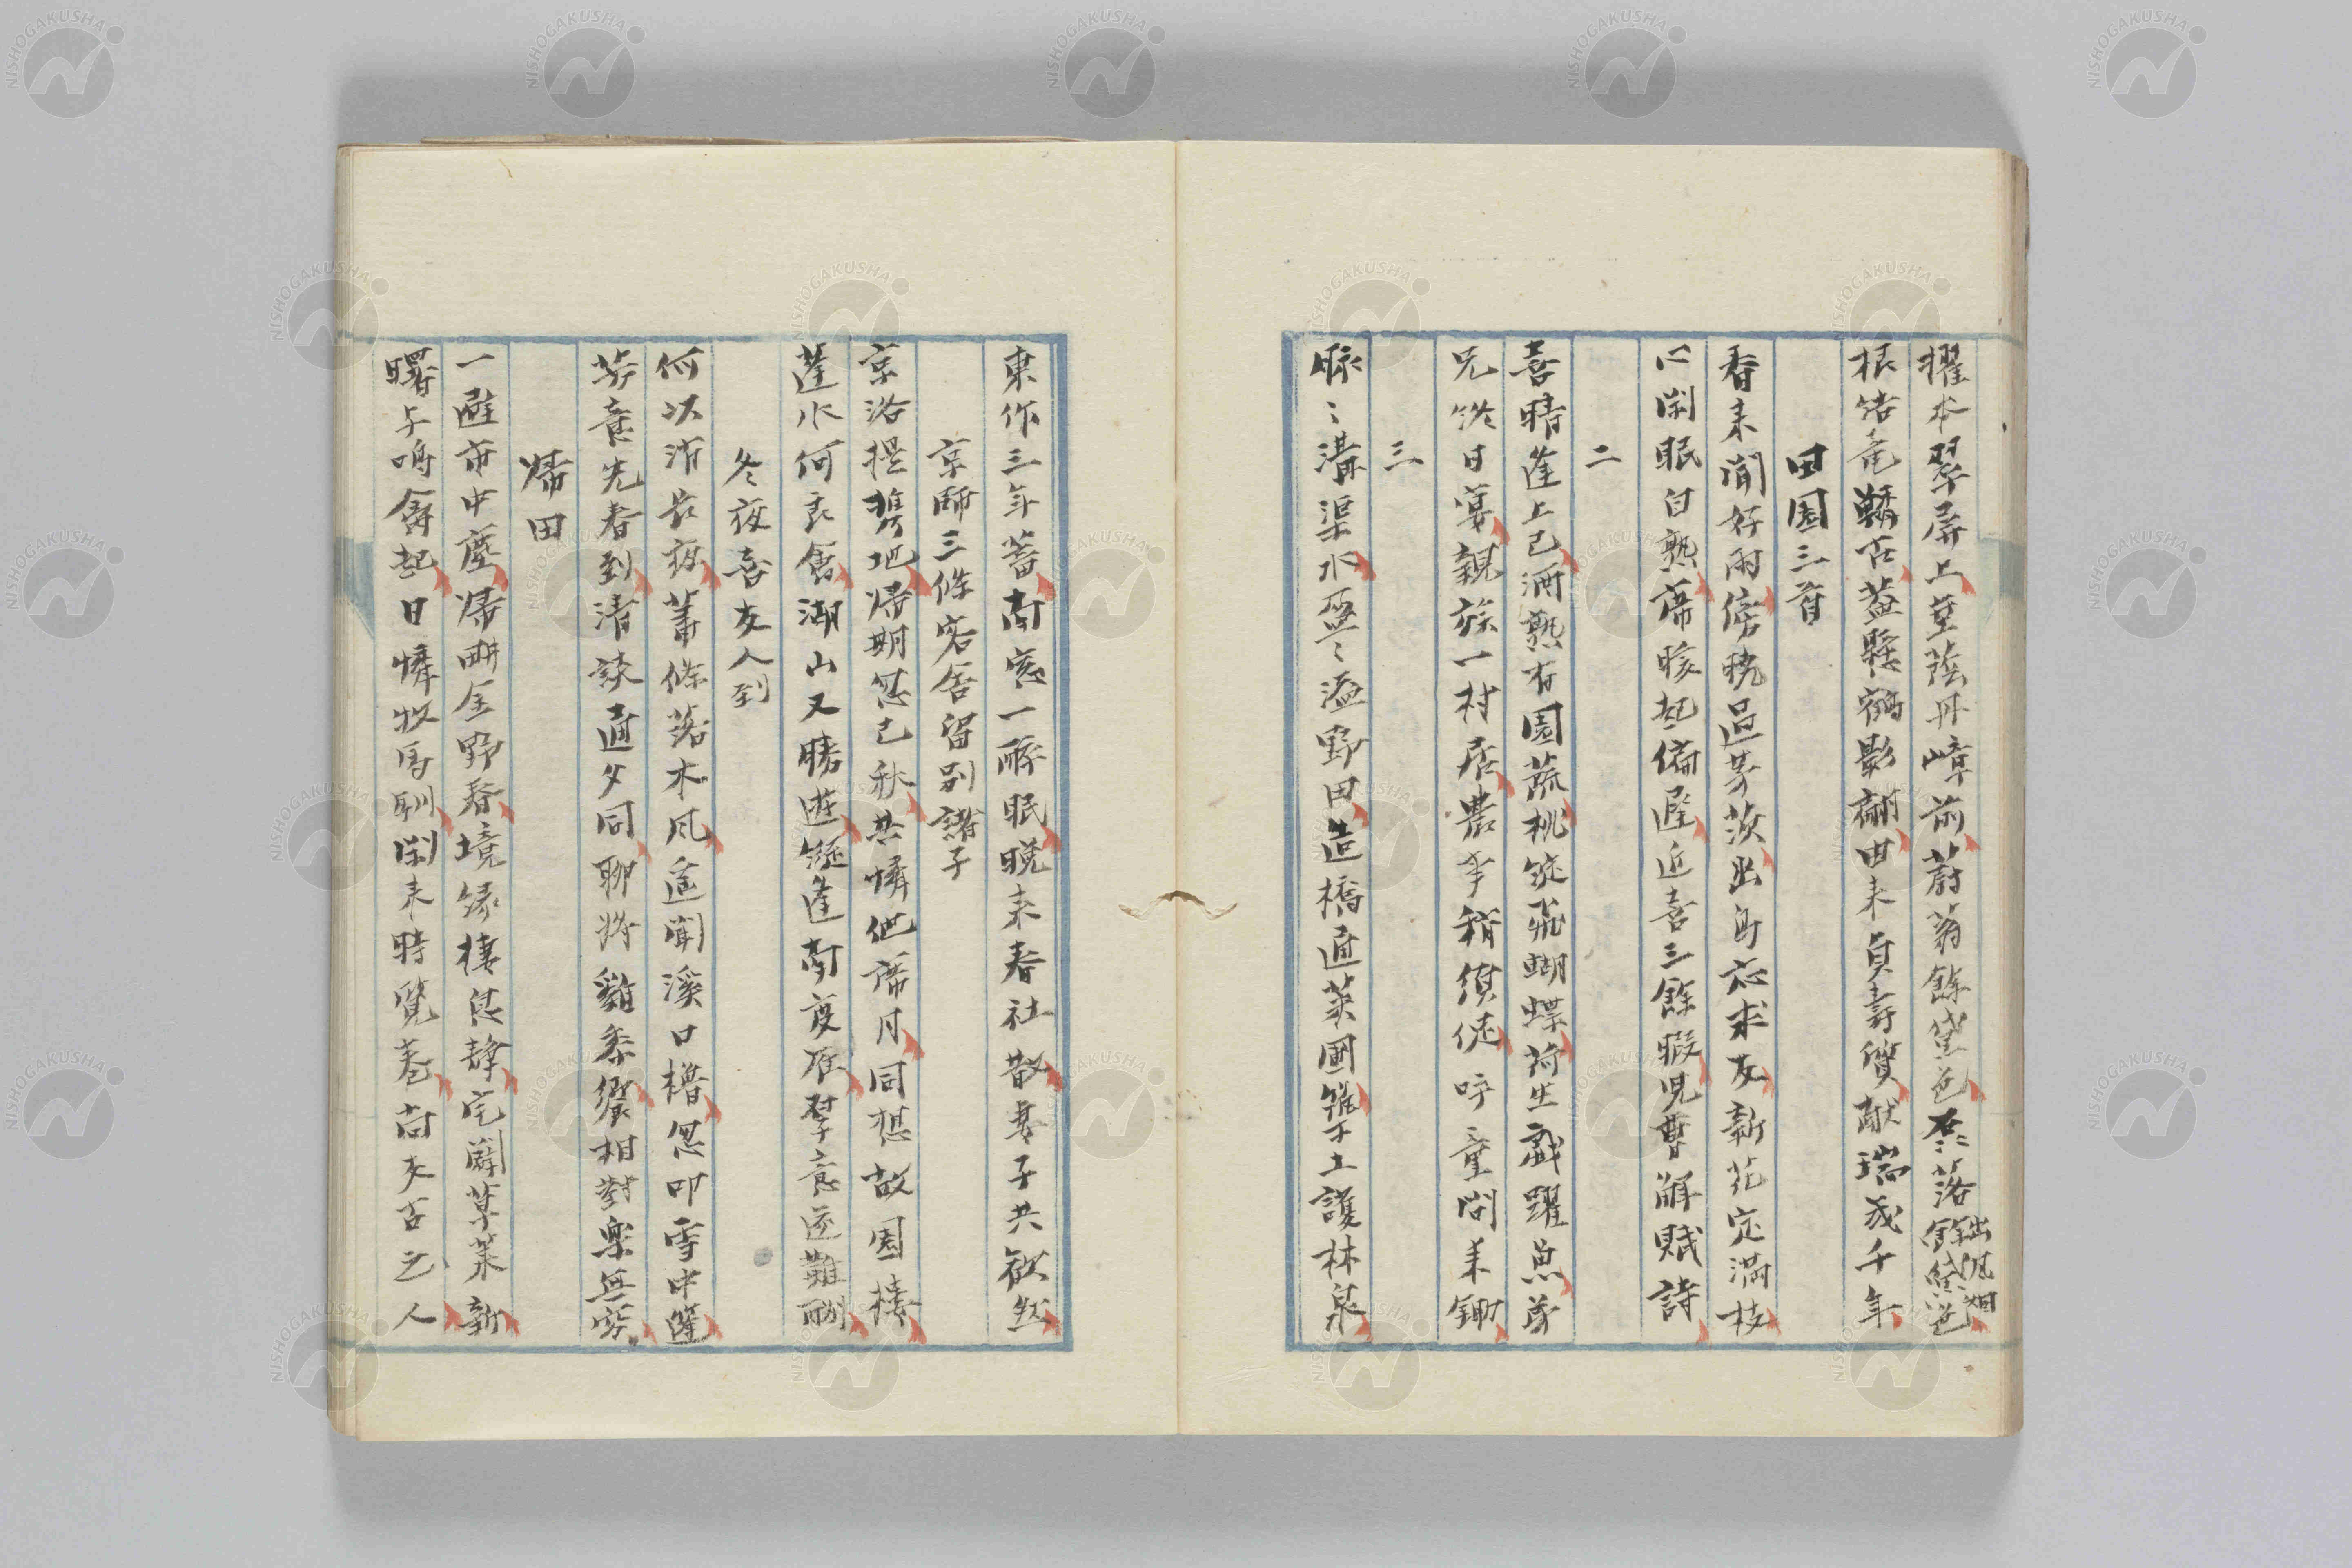 擢本翠屏上垂蔭丹嶂前蔚蓊餘黛色磊々落
出風烟
餘黛色
根結竜鱗古蓋懸鶴影翩由来貞寿質献瑞幾千年
田園三首
春来聞好雨傍暁過茅茨出鳥応求友新花定満枝
心閑眠自熟席暖起偏遅近喜三餘暇児曹解賦詩
二
喜晴逢上巳酒熟有園蔬桃綻飛蝴蝶荷生戯躍魚尊
兄終日宴親族一村居農事稍須促呼童問耒鋤
三
脉々溝渠水盈々溢野田造橋通菜圃築土護林泉
東作三年蓄南窓一酔眠晩来春社散妻子共欲然
京師三條客舎留別諸子
京洛提携地帰期忽已秋共憐他席月同想故園楼
蓬水何良會湖山又勝遊縦逢南度雁琴意遂難酬
冬夜喜友人到
何以消長夜蕭條落木風適聞溪口櫓忽叩雪中篷
芳意先春到清談通夕同聊将雞黍饗相對楽無窮
帰田
一避市中塵帰畊全野春境縁棲息静宅闢草莱新
曙与鳴禽起日憐牧馬馴閑来時覧巻尚友古之人